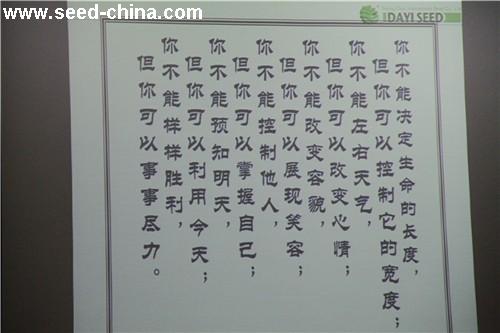 www.seed-china.com
DAYI SEED
你不能决定生命的长度，
但你可以控制它的宽度；
你不能左右天气，
但你可以改变心情；
你不能改变容貌，
但你可以展现笑容；
你不能控制他人，
但你可以掌握自己；
你不能预知明天，
但你可以利用今天；
你不能样样胜利，
但你可以事事尽力。